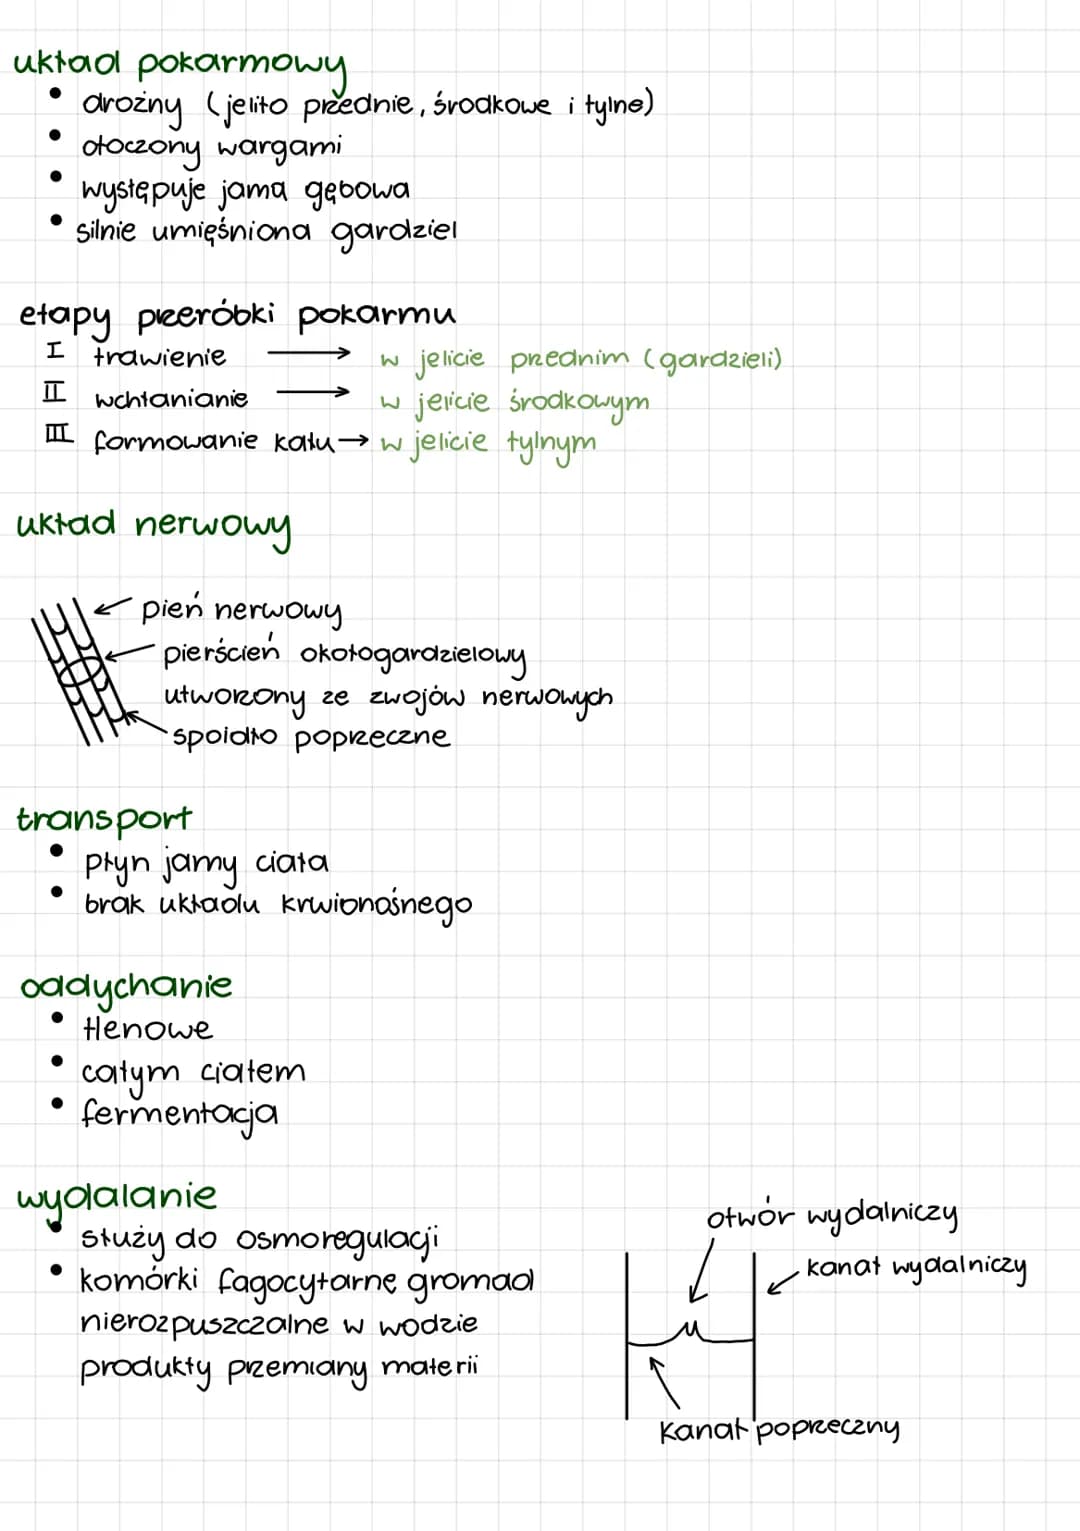 układ pokarmowy
• drożny (jelito przednie, środkowe i tylne)
• otoczony wargami
• występuje jama gębowa
• silnie umięśniona gardziel
etapy przeróbki pokarmu
I trawienie → w jelicie przednim (gardzieli)
II wchłanianie → w jelicie środkowym
III formowanie kału → w jelicie tylnym
układ nerwowy
pień nerwowy
pierścień okołogardzielowy
utworzony ze zwojów nerwowych
spoidło poprzeczne
transport
• płyn jamy ciała
• brak układu krwionośnego
oddychanie
• tlenowe
• całym ciałem
• fermentacja
wydalanie
• służy do osmoregulacji
• komórki fagocytarne gromad
nierozpuszczalne w wodzie
produkty przemiany materii
otwór wydalniczy
kanał wydalniczy
kanał poprzeczny